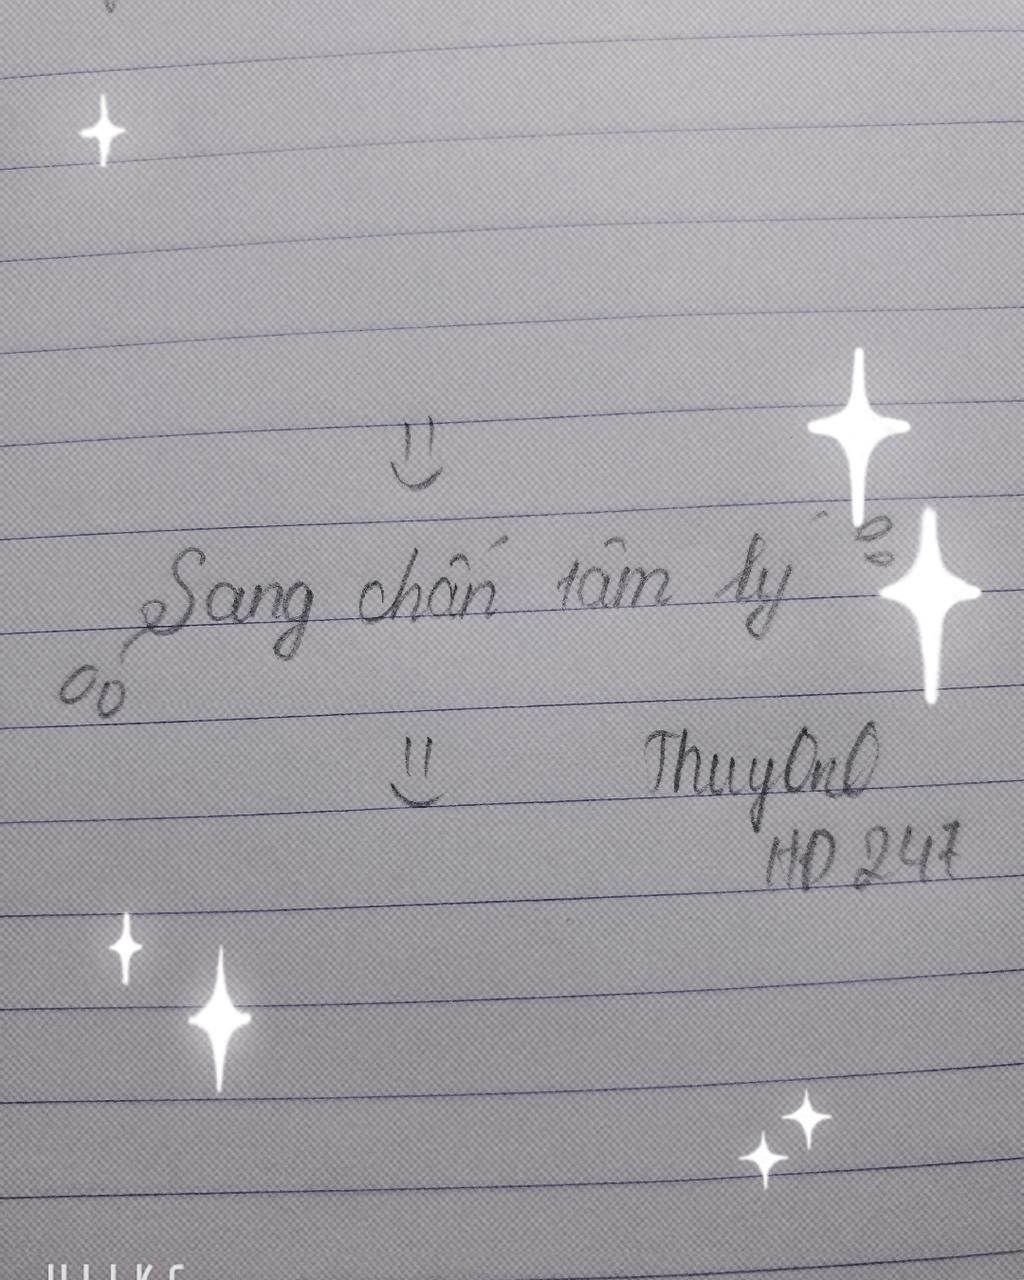 Sang chấn tâm lý
ThuyOnO
HD 247